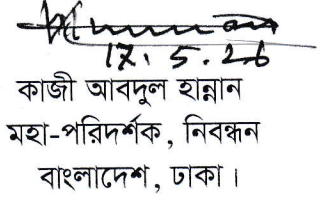 17.5.26
কাজী আবদুল হান্নান
মহা-পরিদর্শক, নিবন্ধন
বাংলাদেশ, ঢাকা।